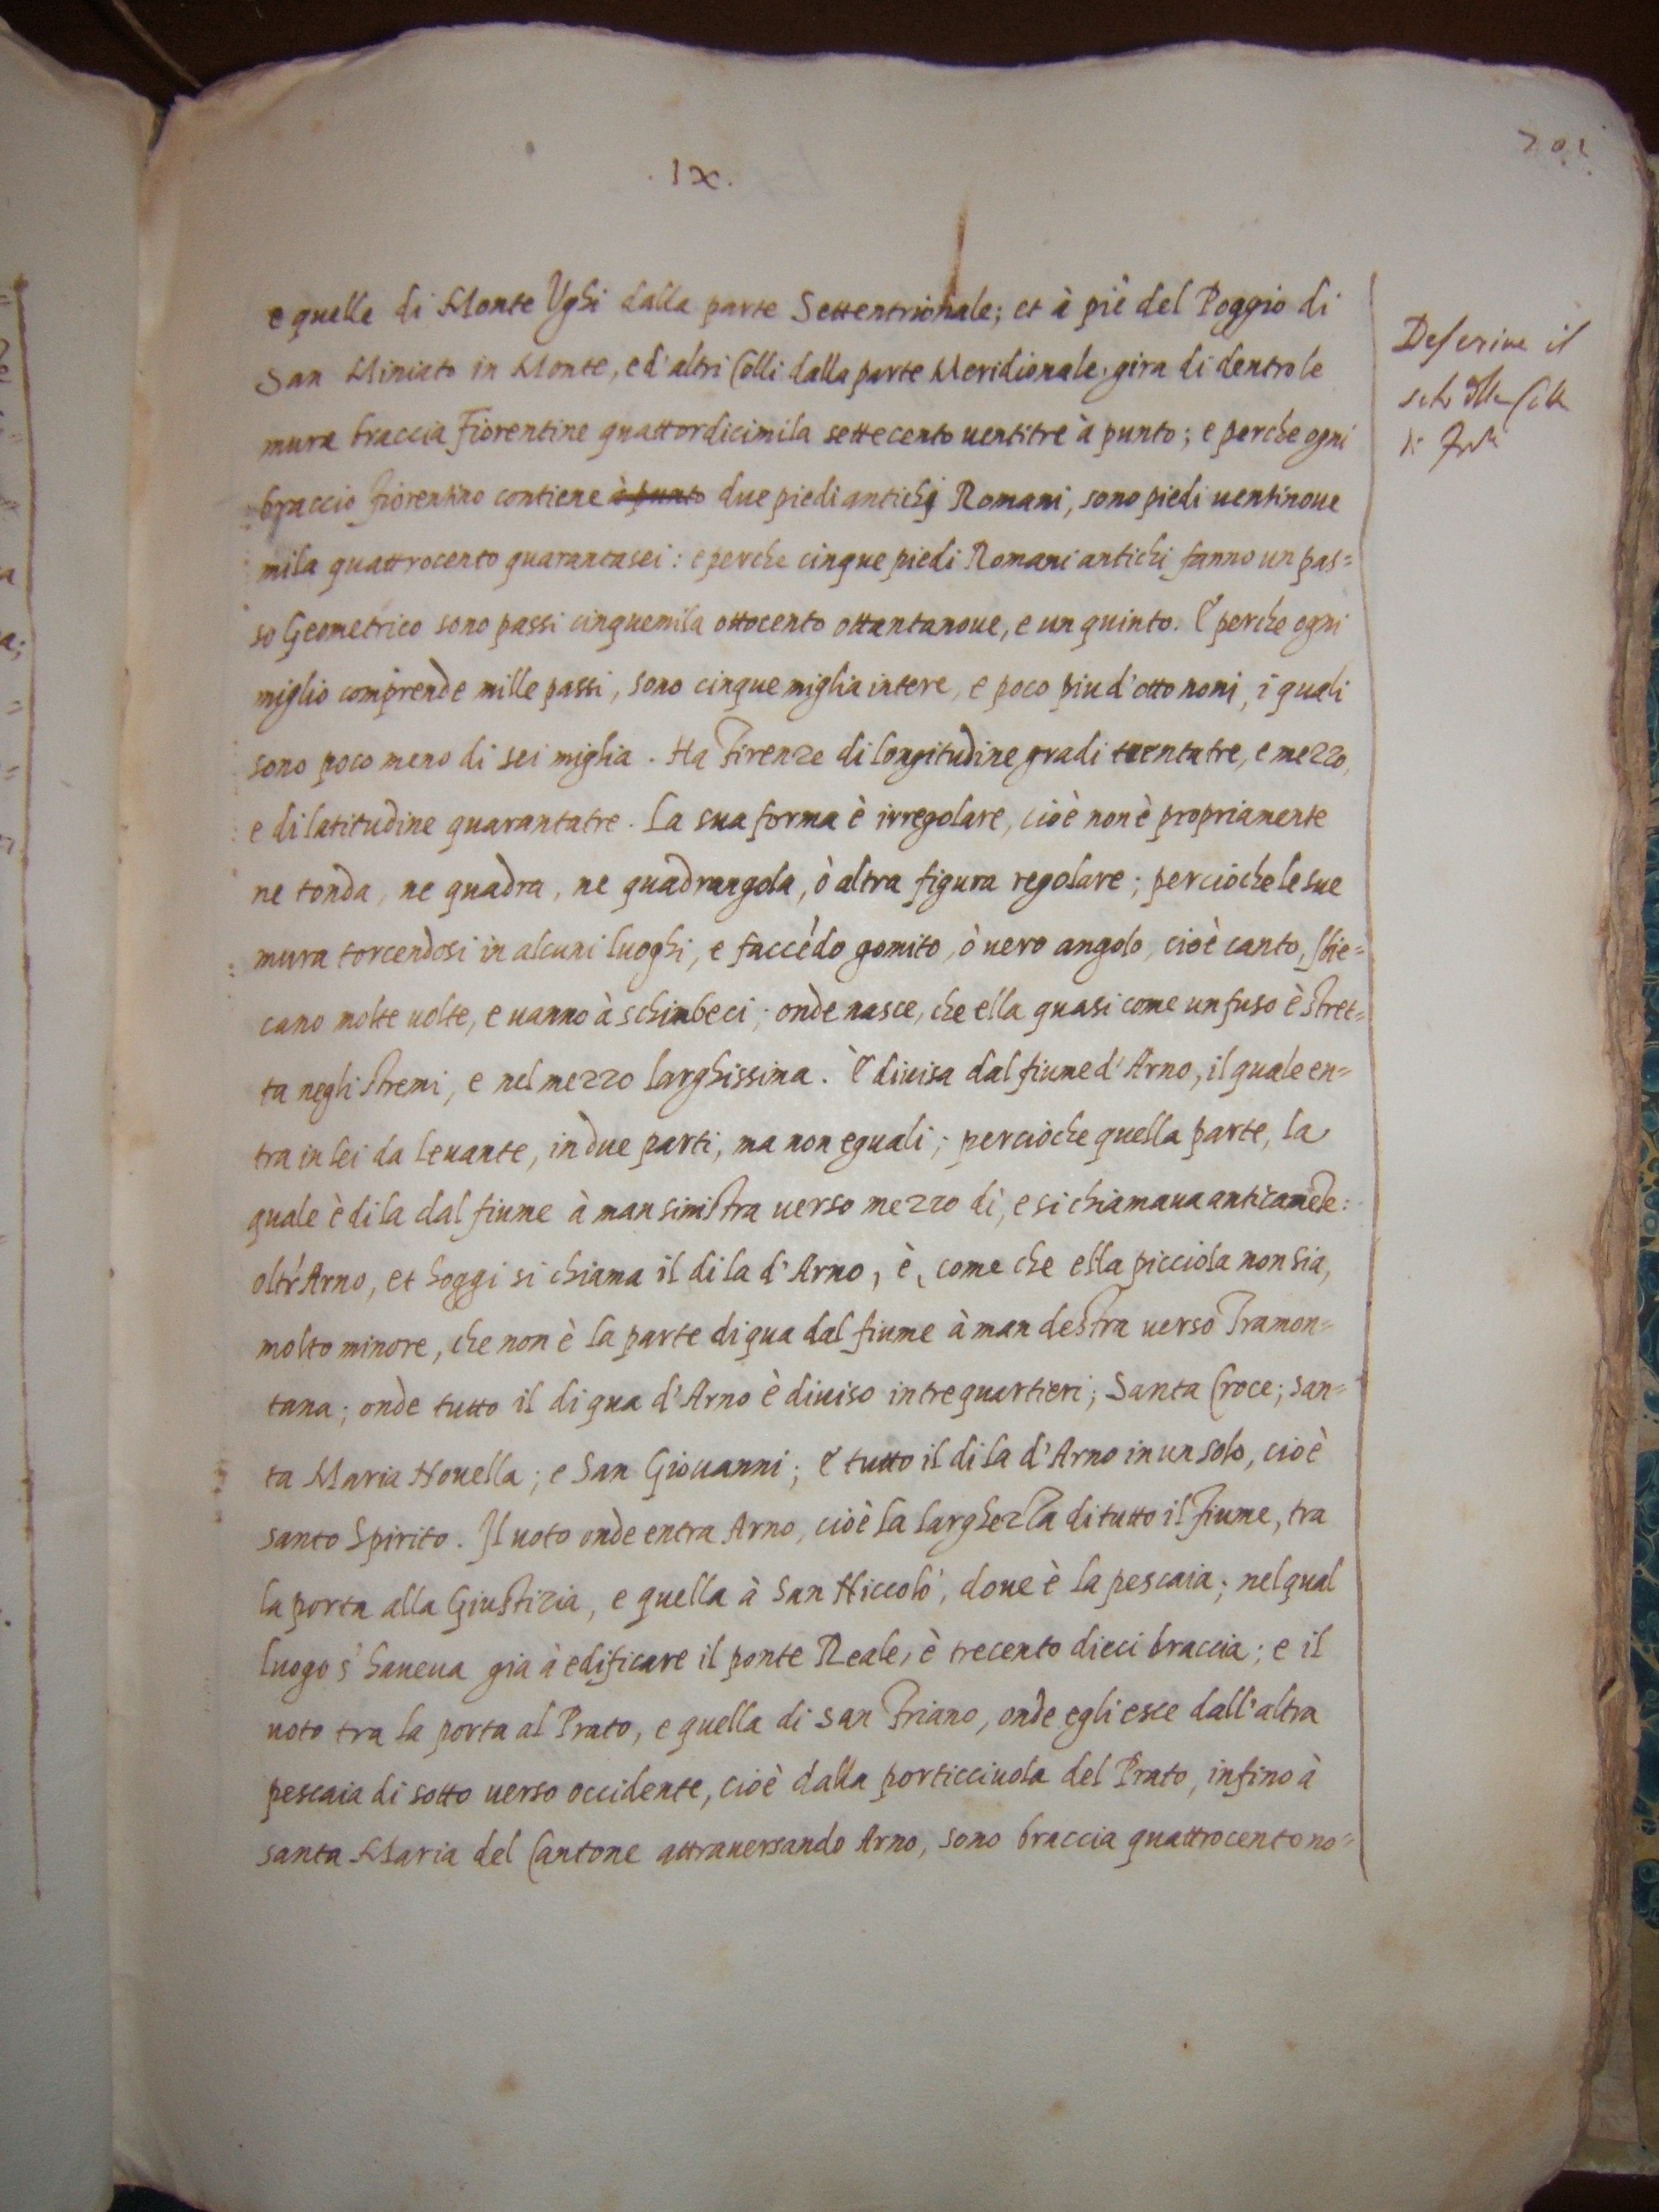 .IX.
e quelle di Monte Vghi dalla parte Settentrionale; et à piè del Poggio di
San Miniato in Monte, ed'altri Colli dalla parte Meridionale, gira di dentro le
mura braccia Fiorentine quattordicimila settecento uentitre à punto; e perche ogni
braccio fiorentino contiene à punto due piedi antichi Romani, sono piedi uentinoue
mila quattrocento quarantasei: e perche cinque piedi Romani antichi fanno un pas=
so Geometrico sono passi cinquemila ottocento ottantanoue, e un quinto. E perche ogni
miglio comprende mille passi, sono cinque miglia intere, e poco piu d'otto noni, i quali
sono poco meno di sei miglia. Ha Firenze di longitudine gradi trentatre, e mezzo,
e di latitudine quarantatre. La sua forma è irregolare, cioè non è propriamente
ne tonda, ne quadra, ne quadrangola, ò altra figura regolare; percioche le sue
mura torcendosi in alcuni luoghi, e faccẽdo gomito, ò uero angolo, cioè canto, sbie=
cano molte uolte, e uanno à schimbeci; onde nasce, che ella quasi come un fuso è stret=
ta negli stremi, e nel mezzo larghissima. È diuisa dal fiume d'Arno, il quale en=
tra in lei da leuante, in due parti, ma non eguali; percioche quella parte, la
quale è di la dal fiume à man sinistra uerso mezzo dì, e si chiamaua anticamẽte:
oltr'Arno, et hoggi si chiama il di la d'Arno, è, come che ella picciola non sia,
molto minore, che non è la parte di qua dal fiume à man destra uerso Tramon=
tana; onde tutto il di qua d'Arno è diuiso in tre quartieri; Santa Croce; San=
ta Maria Nouella; e San Giouanni; e tutto il di la d'Arno in un solo, cioè
santo Spirito. Il uoto onde entra Arno, cioè la larghezza di tutto il fiume, tra
la porta alla Giustizia, e quella à San Niccolò, doue è la pescaia; nel qual
luogo s'haueua già à edificare il ponte Reale, è trecento dieci braccia; e il
uoto tra la porta al Prato, e quella di San Friano, onde egli esce dall'altra
pescaia di sotto uerso occidente, cioè dalla porticciuola del Prato, infino à
santa Maria del Cantone attrauersando Arno, sono braccia quattrocento no=
Descriue il
sito della Città
di